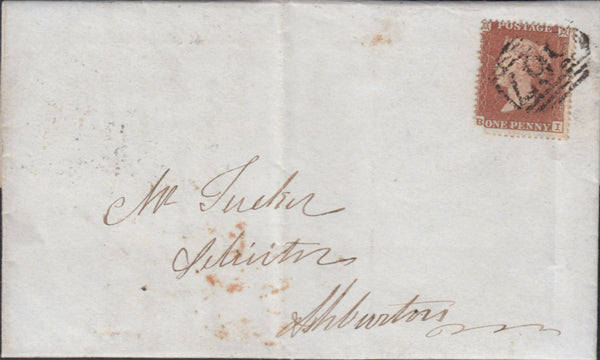 POSTAGE
ONE PENNY
B I
Mr Tucker
Solicitor
Ashburton